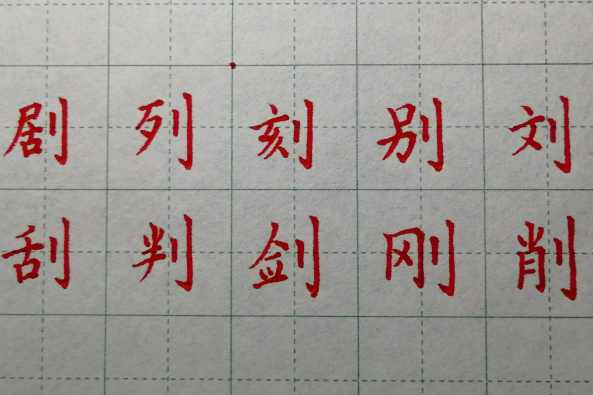 剧列刻别刘
刮判剑刚削